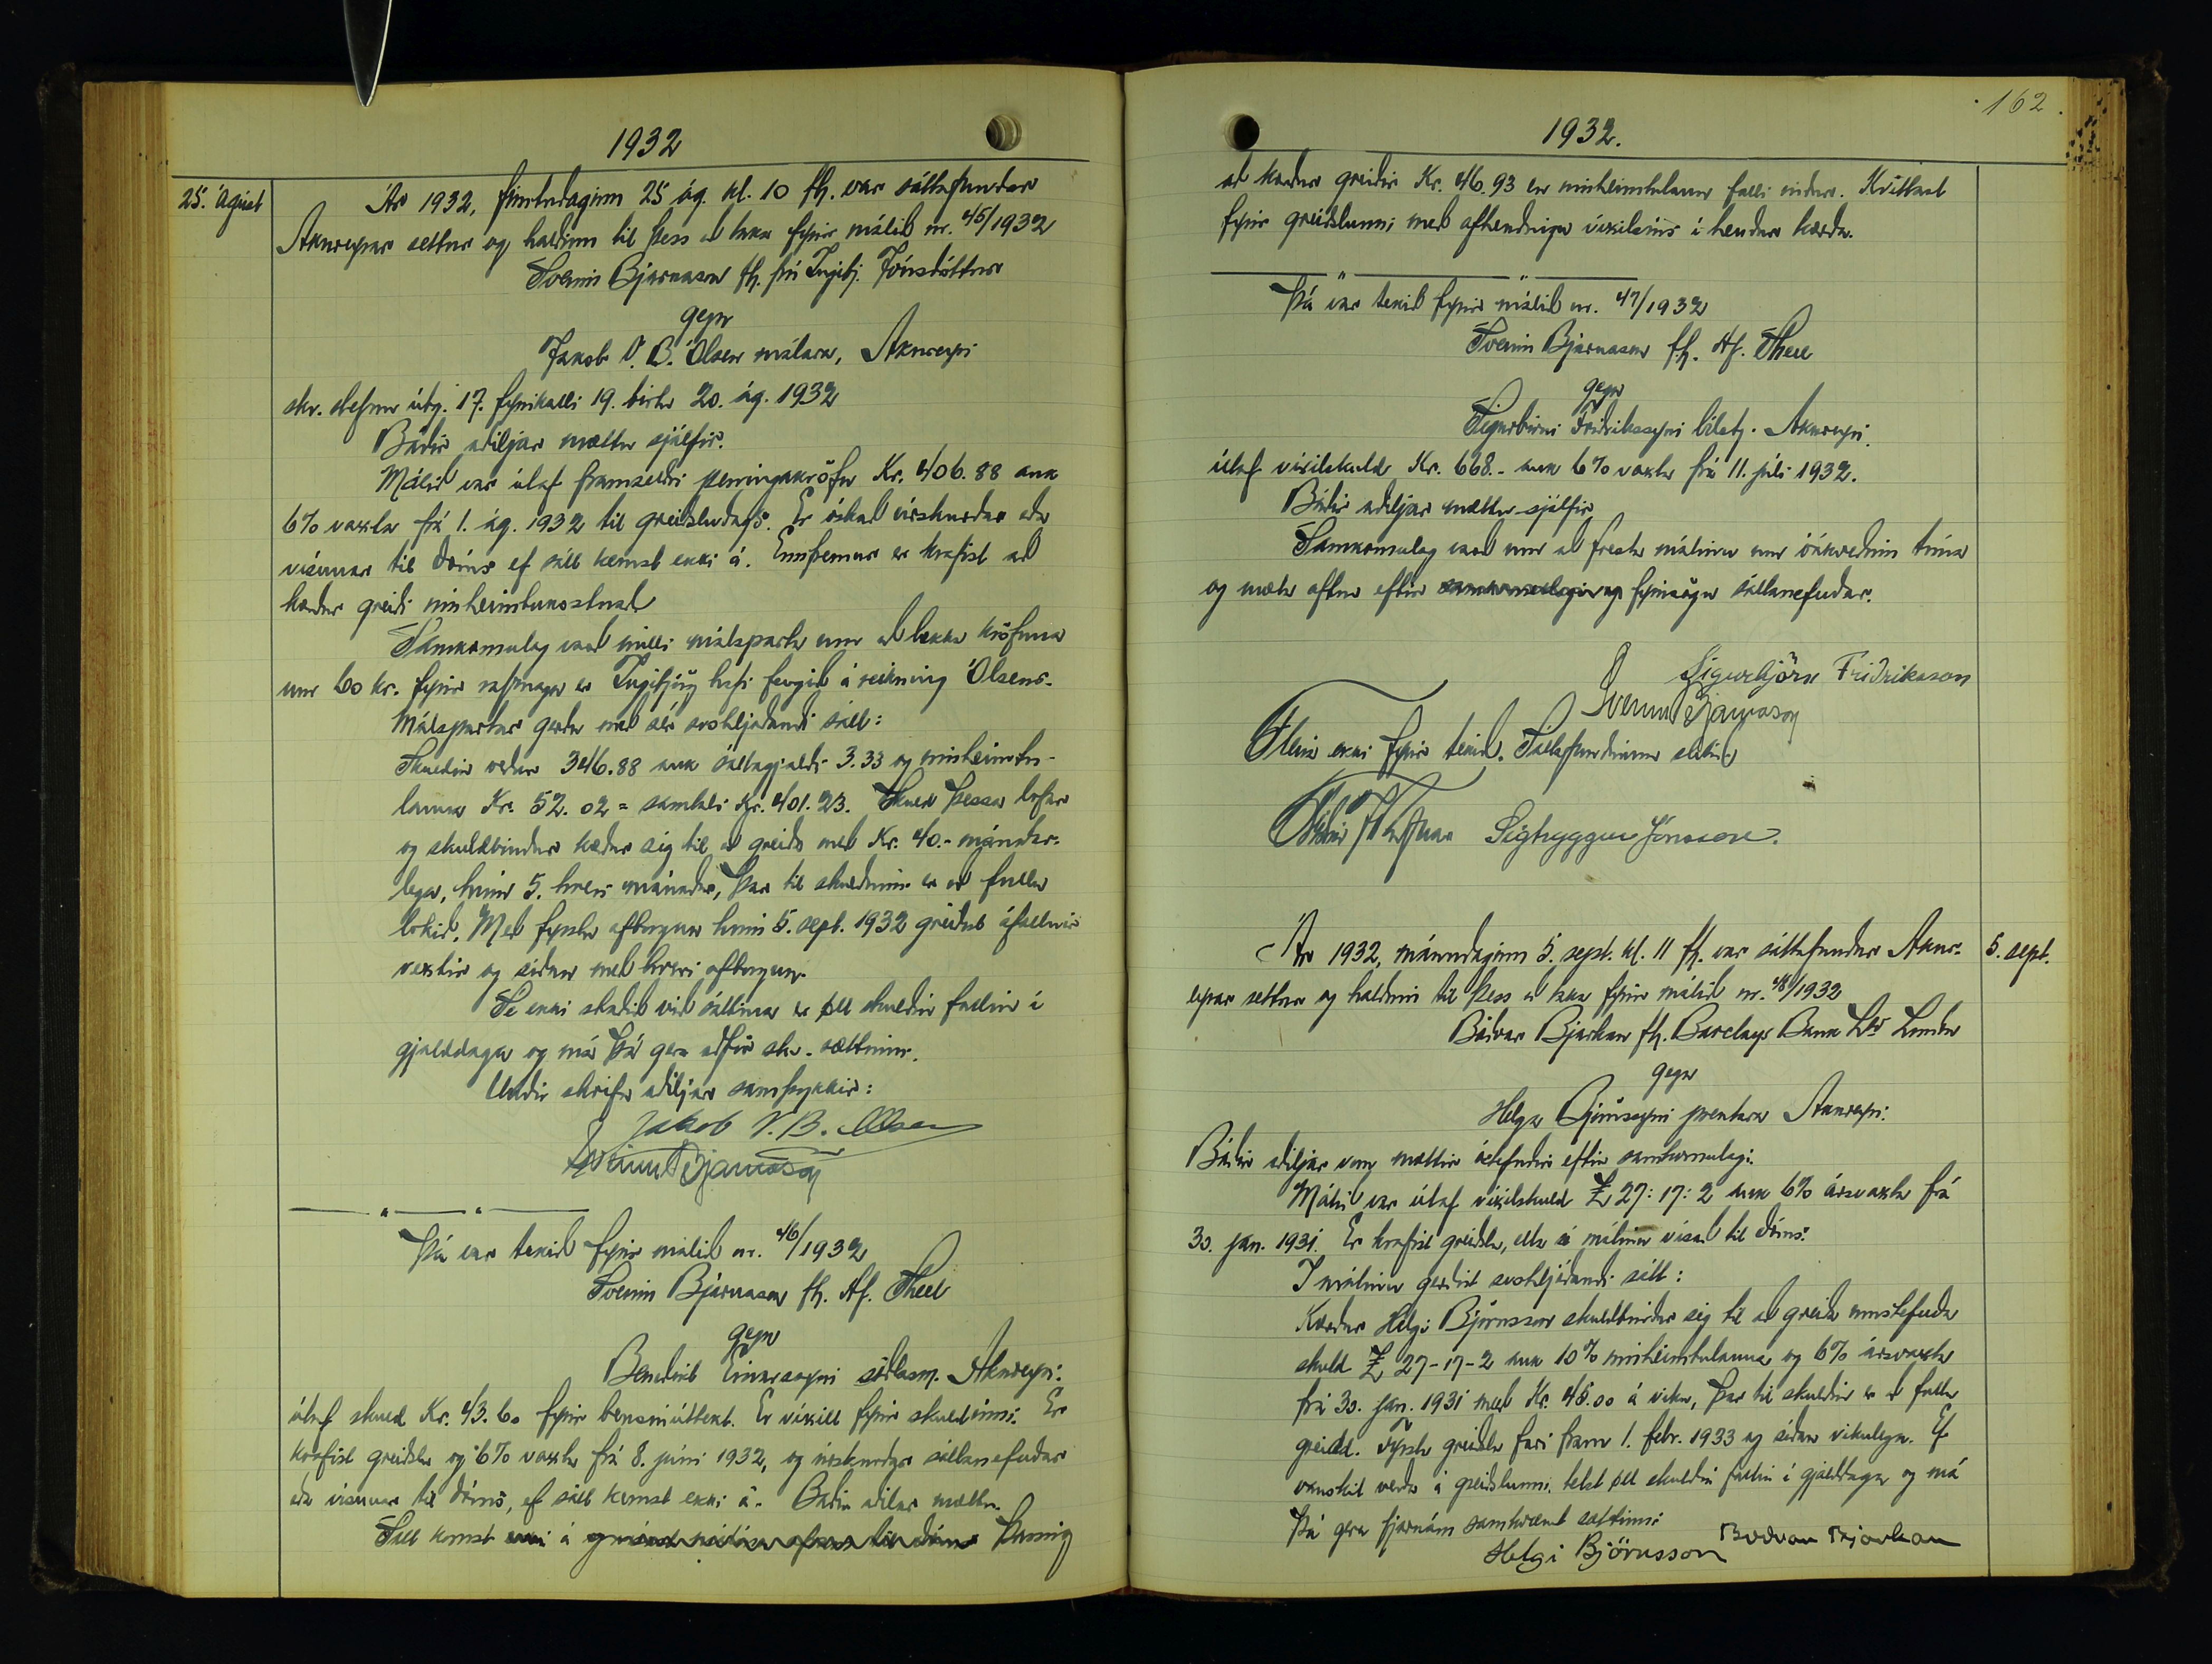 1932
25. ágúst
Ár 1932, fimtudaginn 25 ág. kl. 10 fh. var sáttafundur
Akureyrar settur og haldinn til þess að taka fyrir málið nr. 45/1932
Sveinn Bjarnason fh. frú Ingibj. Jónsdóttur
gegn
Jakob V. B. Olsen málara, Akureyri
skv. stefnu útg. 17. fyrirkalli 19. birtu 20. ág. 1932
Báðir aðiljar mættu sjálfir.
Málið var útaf framseldri peningakröfu Kr. 406.88 auk
6% vaxta frá 1. ág. 1932 til greiðsludags. Er óskað úrskurðar eða
vísunar til dóms ef sátt kemst ekki á. Ennfremur er krafist að
kærður greiði innheimtukostnað
Samkomulag varð milli málsparta um að lækka kröfuna
um 60 kr. fyrir er Ingibjörg hafi fengið á reikning Olsens.
Málspartar gerðu með sér svohljóðandi sátt:
Skuldin verður 346.88 auk sáttagjalds 3.33 og innheimtu-
launa Kr. 52.02 = samtals kr. 401.23. Skuld þessa lofar
og skuldbindur kærður sig til að greiða með Kr. 40.- mánaðar-
lega, hinn 5. hvers mánaðar, þar til skuldinni er að fullu
lokið. Með fyrstu afborgun hinn 5. sept. 1932 greiðast áfallnir
vextir og síðan með hverri afborgun.
Sé ekki staðið við sáttina er öll skuldin fallin í
gjalddaga og má þá gera aðför skv. sættinni.
Undir skrifa aðiljar samþykkir:
Jakob V. B. Olsen
Sveinn Bjarnason
Þá var tekið fyrir málið nr. 46/1932
Sveinn Bjarnason fh. Hf. Shell
gegn
Benedikt Einarssyni söðlasm. Akureyri:
útaf skuld Kr. 43.60 fyrir bensínúttekt. Er víxill fyrir skuldinni. Er
krafist greiðslu og 6% vaxta frá 8. júní 1932, og úrskurðar sáttanefndar
eða vísunar til dóms, ef sátt kemst ekki á. Báðir aðilar mættu.
Sátt komst á þannig
162
1932.
að kærður greiðir Kr. 46.93 en innheimtulaun falli niður. Kvittast
fyrir greiðslunni með afhendingu víxilsins í hendur kærða.
Þá var tekið fyrir málið nr. 47/1932
Sveinn Bjarnason fh. Hf. Shell
gegn
Sigurbirni Friðrikssyni bílstj. Akureyri
útaf víxilskuld Kr. 668.- auk 6% vaxta frá 11. júlí 1932.
Báðir aðiljar mættu sjálfir.
Samkomulag varð um að fresta málinu um óákveðinn tíma
og mæta aftur eftir fyrirsögn sáttanefndar.
Sigurbjörn Friðriksson
Sveinn Bjarnason
Fleira ekki fyrir tekið. Sáttafundinum slitið
Sigtryggur Jónsson.
5. sept.
Ár 1932, mánudaginn 5. sept. kl. 11 fh. var sáttafundur Akur-
eyrar settur og haldinn til þess að taka fyrir málið nr. 48/1932
Böðvar Bjarkan fh. Barclays Bank Ltd London
gegn
Helga Björnssyni prentara Akureyri:
Báðir aðiljar voru mættir óstefndir eftir samkomulagi.
Málið var útaf víxilskuld £ 27:17:2 auk 6% ársvaxta frá
30. jan. 1931. Er krafist greiðslu, ella sé málinu vísað til dóms.
Í málinu gerðist svohljóðandi sátt:
Kærður Helgi Björnsson skuldbindur sig til að greiða umstefnda
skuld £ 27-17-2 auk 10% innheimtulauna og 6% ársvaxta
frá 30. jan. 1931 með Kr. 45.00 á viku, þar til skuldin er að fullu
greidd. Fyrsta greiðsla fari fram 1. febr. 1933 og síðan vikulega. Ef
vanskil verða á greiðslunni, telst öll skuldin fallin í gjalddaga og má
þá gera fjárnám samkvæmt sættinni
Helgi Björnsson Böðvar Bjarkan